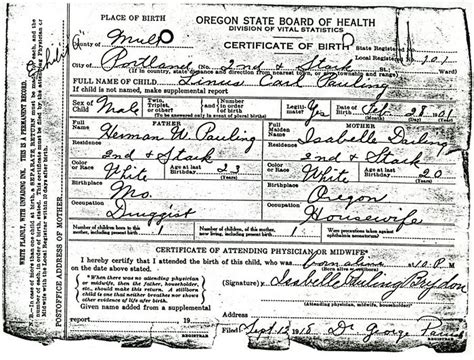 PLACE OF BIRTH
OREGON STATE BOARD OF HEALTH
DIVISION OF VITAL STATISTICS
CERTIFICATE OF BIRTH
County of Mult
State Registered
City of Portland No. 2nd & Stark
Local Registered 101
(If in country, state distance and direction from nearest town, or give township and range)
FULL NAME OF CHILD Linus Carl Pauling
If child is not named, make supplemental report
Sex of Child Male
Twin, Triplet, or other?
(To be answered only in event of plural births)
Legitimate? Yes
Date of Birth Feb. 28 1901
FATHER
Full Name Herman W Pauling
MOTHER
Full Maiden Name Isabelle Darling
Residence 2nd & Stark
Residence 2nd & Stark
Color or Race White
Age at last Birthday 23 (Years)
Color or Race White
Age at last Birthday 20 (Years)
Birthplace Mo.
Birthplace Oregon
Occupation Druggist
Occupation Housewife
Number of children born to this mother, including present birth 1
Number of children of this mother now living, including present birth 1
Were precautions taken against ophthalmia neonatorum?
CERTIFICATE OF ATTENDING PHYSICIAN OR MIDWIFE
I hereby certify that I attended the birth of this child, who was born alive 10 P. M.
on the date above stated.
(Born alive or stillborn)
When there was no attending physician or midwife, then the father, householder, etc., should make this return. A stillborn child is one that neither breathes nor shows other evidence of life after birth.
(Signature) Isabelle Pauling Bryden
(attending physician, midwife, householder)
Given name added from a supplemental report
Address
Filed Sept. 12, 1918 Dr George
REGISTRAR
REGISTRAR
WRITE PLAINLY, WITH UNFADING INK. THIS IS A PERMANENT RECORD.
POSTOFFICE ADDRESS OF MOTHER.